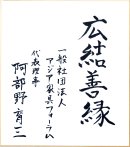 広結善縁
一般社団法人
アジア風具フォーラム
代表理事
阿部野育三